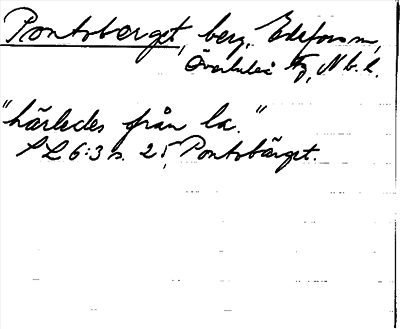 Pontsberget, berg, Edefors sn,
Överluleå tg, Nb. l.
"härledes från la."
SL 6:3 s. 25, Pontsbärget.